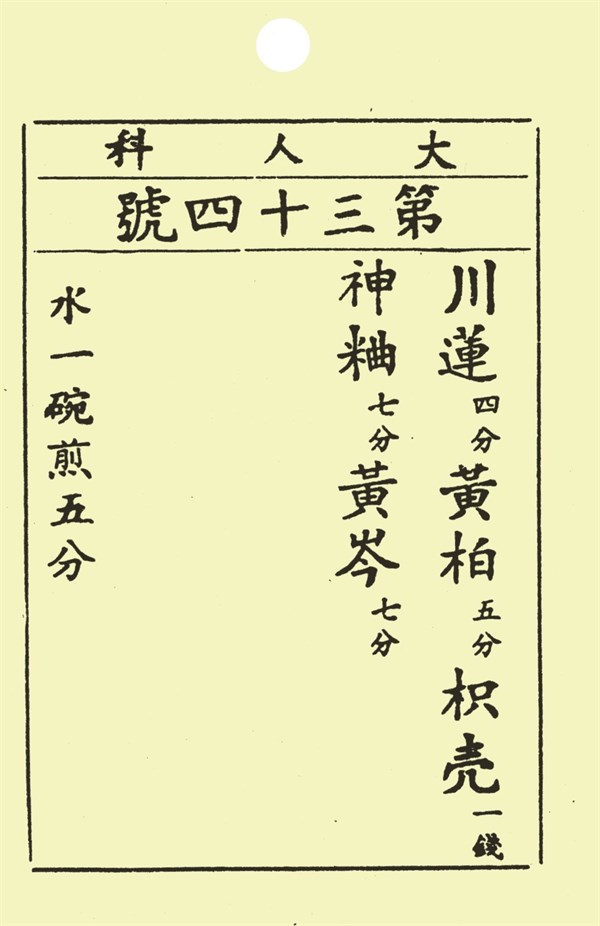 大人科
第三十四號
川蓮四分黃柏五分枳壳一錢
神粬七分黃岑七分
水一碗煎五分